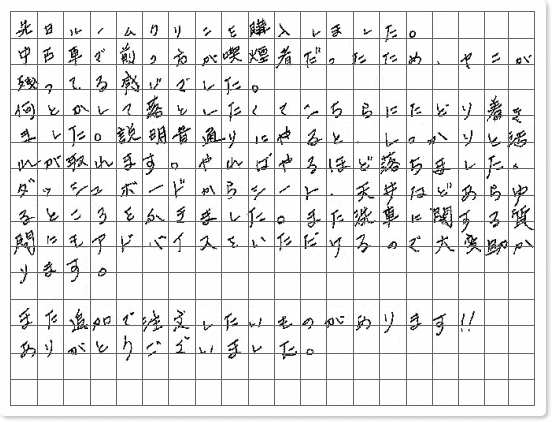 先日ルームクリンを購入しました。
中古車で前の方が喫煙者だったため、ヤニが
残ってる感じでした。
何とかして落としたくてこちらにたどり着き
ました。説明書通りにやると、しっかりと汚
れが取れます。やればやるほど落ちました。
ダッシュボードからシート、天井などあら中
るところをふきました。また洗車に関する質
問にもアドバイスをいただけるので大変助か
ります。
また追加で注文したいものがあります!!
ありがとうございました。